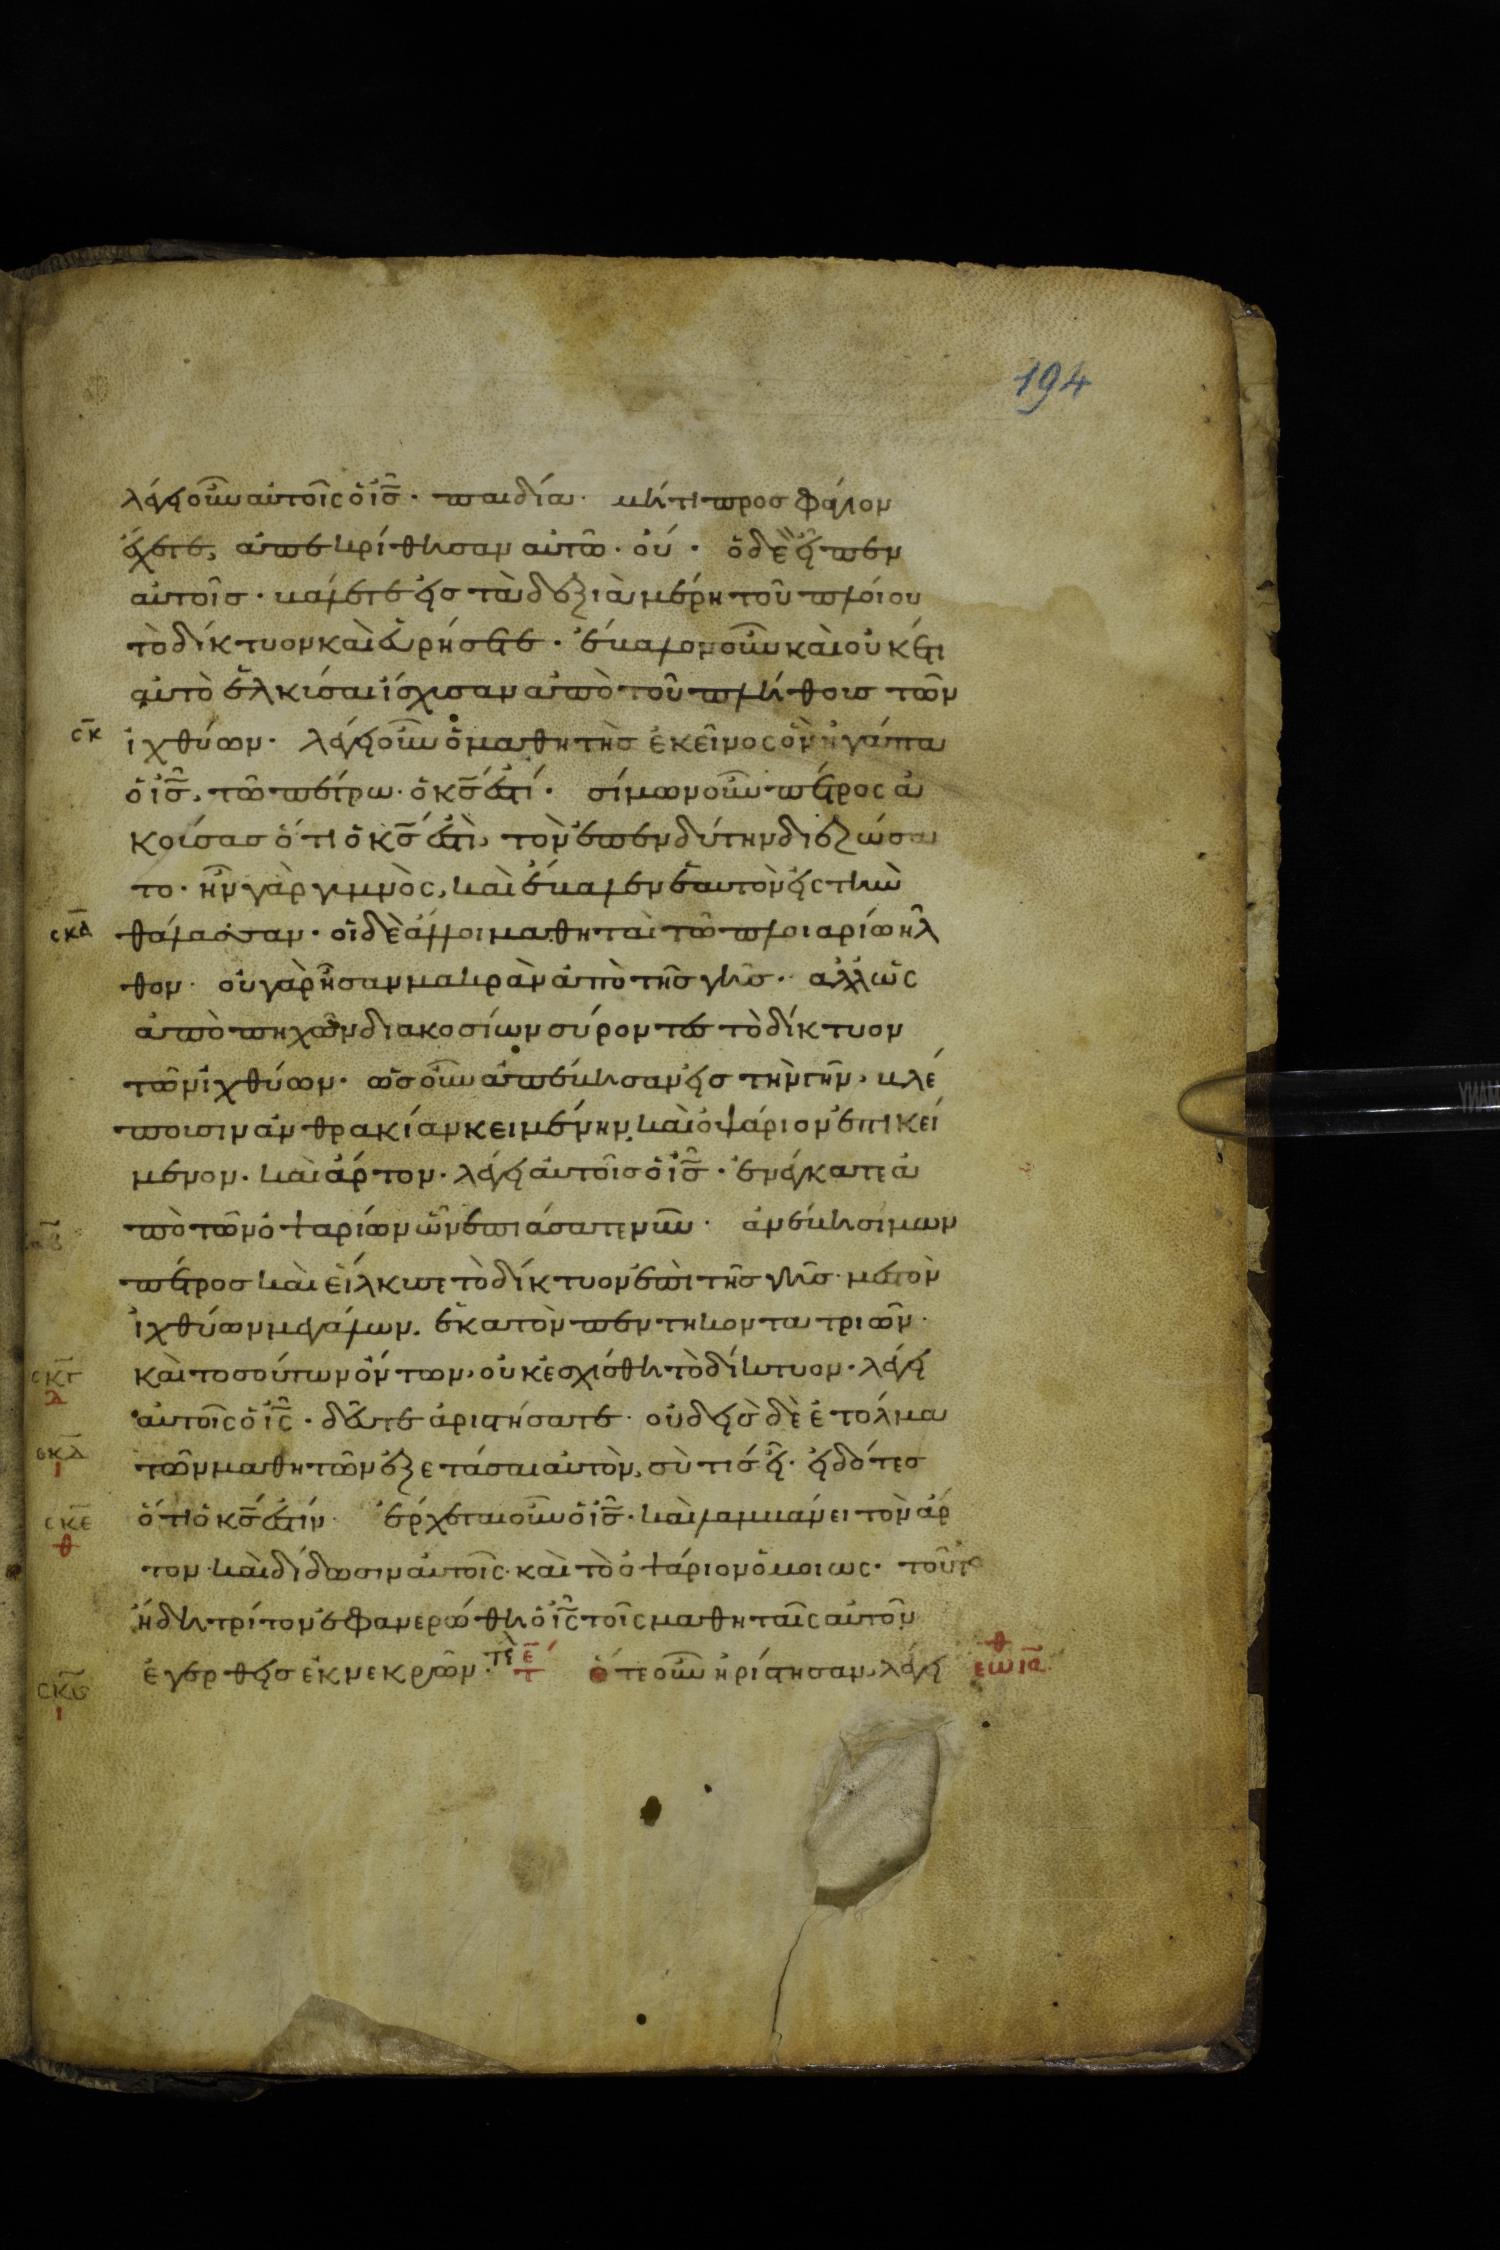 194
λέγει οὖν αὐτοῖς ὁ ις̅· παιδία· μήτι προσφάγιον
ἔχετε, ἀπεκρίθησαν αὐτῶ· οὐ· ὁ δὲ εἶπεν
αὐτοῖς· βάλετε εἰς τὰ δεξιὰ μέρη τοῦ πλοίου
τὸ δίκτυον καὶ εὑρήσετε· ἔβαλον οὖν καὶ οὐκέτι
αὐτὸ ἑλκίσαι ἴσχισαν ἀπὸ τοῦ πλήθους τῶν
σκ̅ ἰχθύων· λέγει οὖν ὁ μαθητὴς ἐκεῖνος ὃν ἠγάπα
ὁ ις̅, τῶ πέτρω· ὁ κς̅ ἐστί· σίμων οὖν πέτρος ἀ
κοίσας ὅτι ὁ κς̅ ἐστὶ, τὸν ἐπενδύτην διεζώσα
το· ἦν γὰρ γιμνὸς, καὶ ἔβαλεν ἑαυτὸν εἰς τὴν
σκα̅ θάλασσαν· οἱ δὲ ἄλλοι μαθηταὶ τῶ πλοιαρίω ἦλ
θον· οὐ γὰρ ἦσαν μακρὰν ἀπὸ τῆς γῆς· ἀλλ ὡς
ἀπὸ πηχῶν διακοσίων σύροντες τὸ δίκτυον
τῶν ἰχθύων· ὡς οὖν ἀπέβησαν εἰς τὴν γῆν, βλέ
ποισιν ἀνθρακίαν κειμένην, καὶ ὀψάριον ἐπικεί
μενον· καὶ ἄρτον· λέγει αὐτοῖς ὁ ις̅· ἐνέγκατε ἀ
πὸ τῶν ὀψαρίων ὧν ἐπιάσατε νῦν· ἀνέβη σίμων
πέτρος καὶ εἵλκυσε τὸ δίκτυον ἐπὶ τῆς γῆς· μεστὸν
ἰχθύων μεγάλων. ἑκατὸν πεντήκοντα τριῶν·
σκγ̅ καὶ τοσούτων ὄντων, οὐκ ἐσχίσθη τὸ δίκτυον· λέγει
αὐτοῖς ὁ ις̅· δεῦτε ἀριστήσατε· οὐδεὶς δὲ ἐτόλμα
σκδ̅ ι τῶν μαθητῶν ἐξετάσαι αὐτὸν, σὺ τίς εἶ· εἰδότες
σκε̅ θ ὅτι ὁ κς̅ ἐστίν· ἔρχεται οὖν ὁ ις̅· καὶ λαμβάνει τὸν ἄρ
τον· καὶ δίδωσιν αὐτοῖς· καὶ τὸ ὀψάριον ὁμοίως· τοῦτο
ἤδη τρίτον ἐφανερώθη ὁ ις̅ τοῖς μαθηταῖς αὐτοῦ
σκϛ̅ ι ἐγερθεὶς ἐκ νεκρῶν· τε ὅτε οὖν ἠρίστησαν, λέγει θ εωια̅